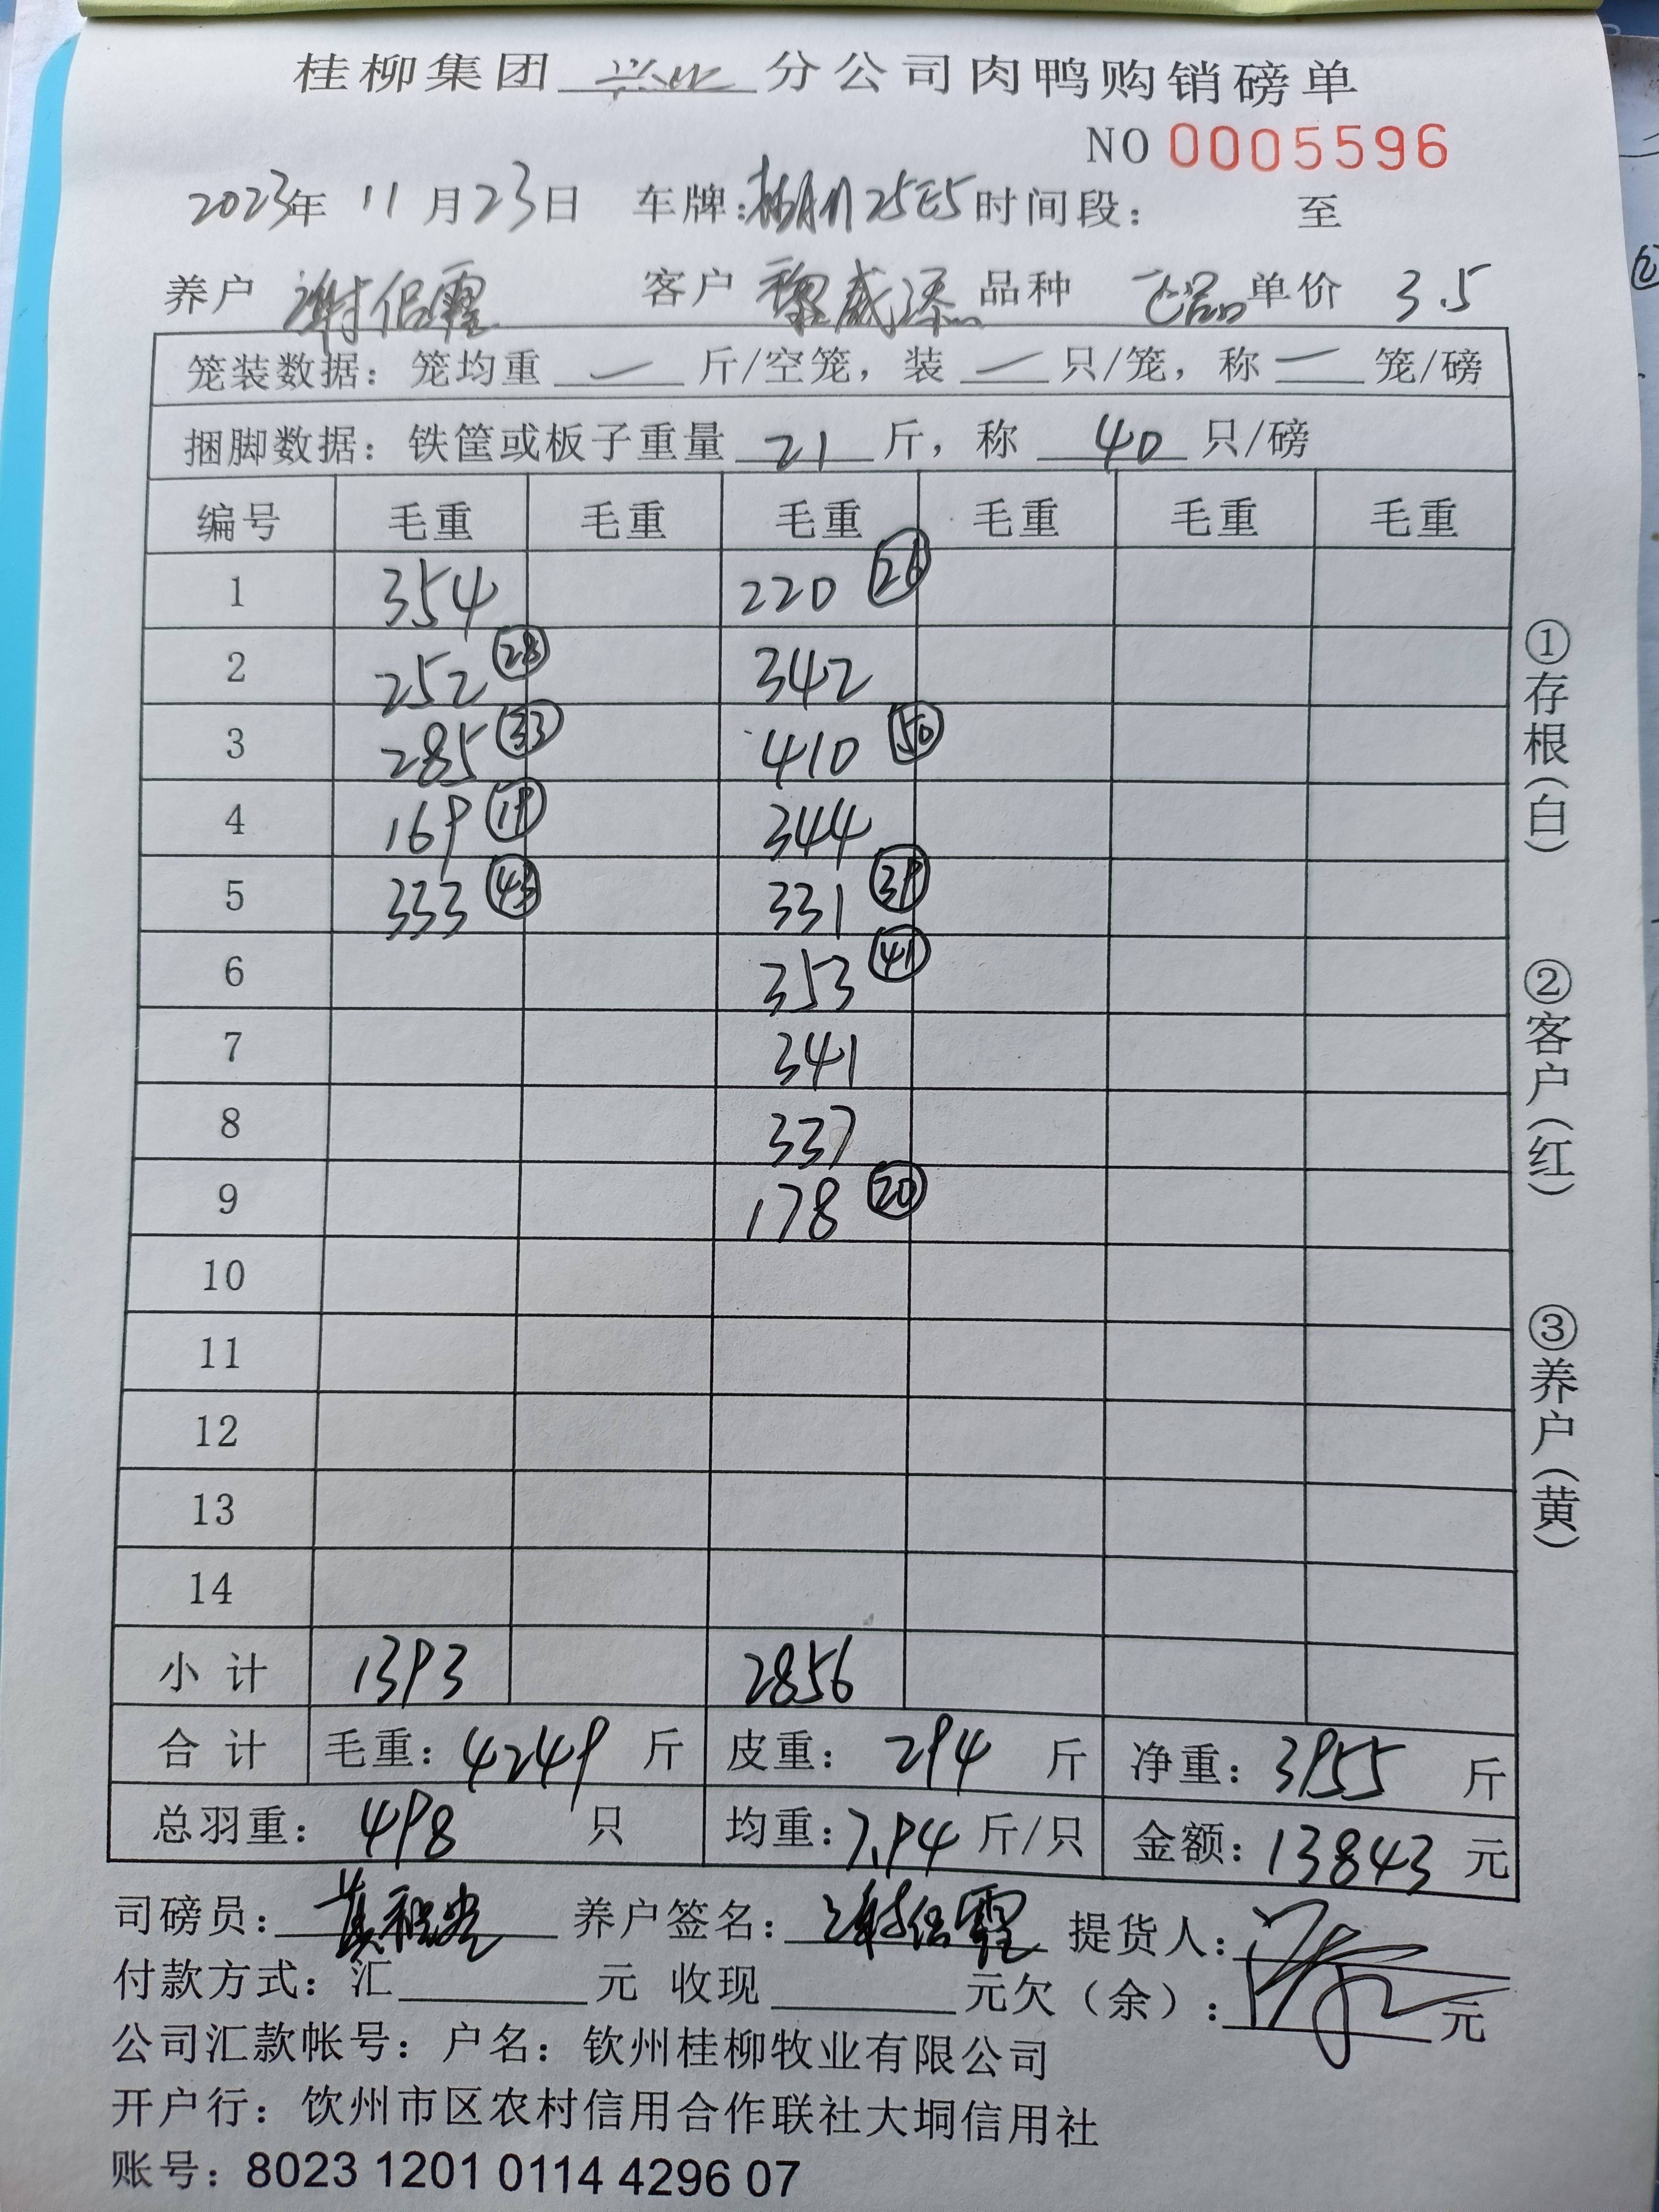 桂柳集团 兴业 分公司肉鸭购销磅单
NO 0005596
2023年 11月23日 车牌: 25E5 时间段: 至
养户 谢侣霞 客户 黎威添 品种 单价 3.5
笼装数据: 笼均重 — 斤/空笼, 装 — 只/笼, 称 — 笼/磅
捆脚数据: 铁筐或板子重量 21 斤, 称 40 只/磅
编号 毛重 毛重 毛重 毛重 毛重 毛重
1 354 220 26
2 252 28 342
3 285 33 410 50
4 169 19 344
5 333 43 331 39
6 353 41
7 341
8 337
9 178 20
10
11
12
13
14
小计 1393 2856
合计 毛重: 4249 斤 皮重: 294 斤 净重: 3955 斤
总羽重: 498 只 均重: 7.94 斤/只 金额: 13843 元
司磅员: 养户签名: 谢侣霞 提货人:
付款方式: 汇 元 收现 元欠(余): 元
公司汇款帐号: 户名: 钦州桂柳牧业有限公司
开户行: 饮州市区农村信用合作联社大垌信用社
账号: 8023 1201 0114 4296 07
①存根(白)
②客户(红)
③养户(黄)